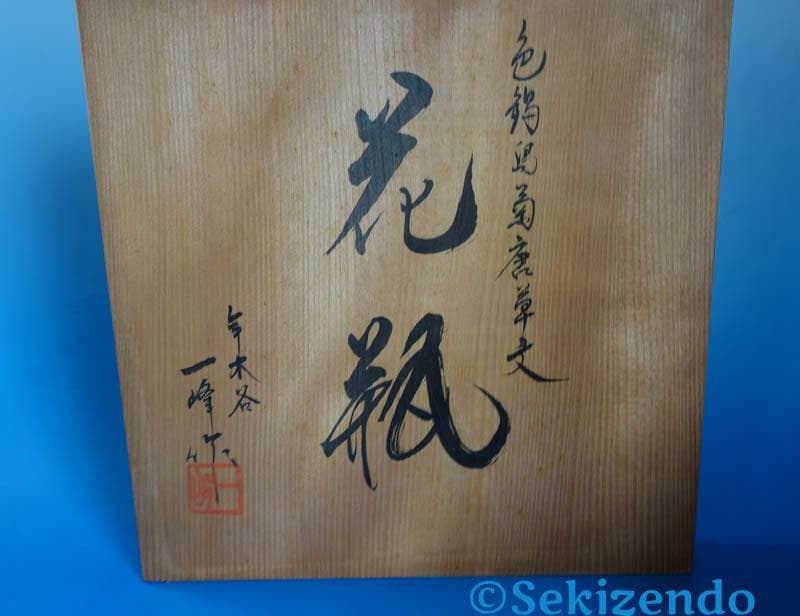 色鍋島菊唐草文
花瓶
年木谷
一峰作
©Sekizendo